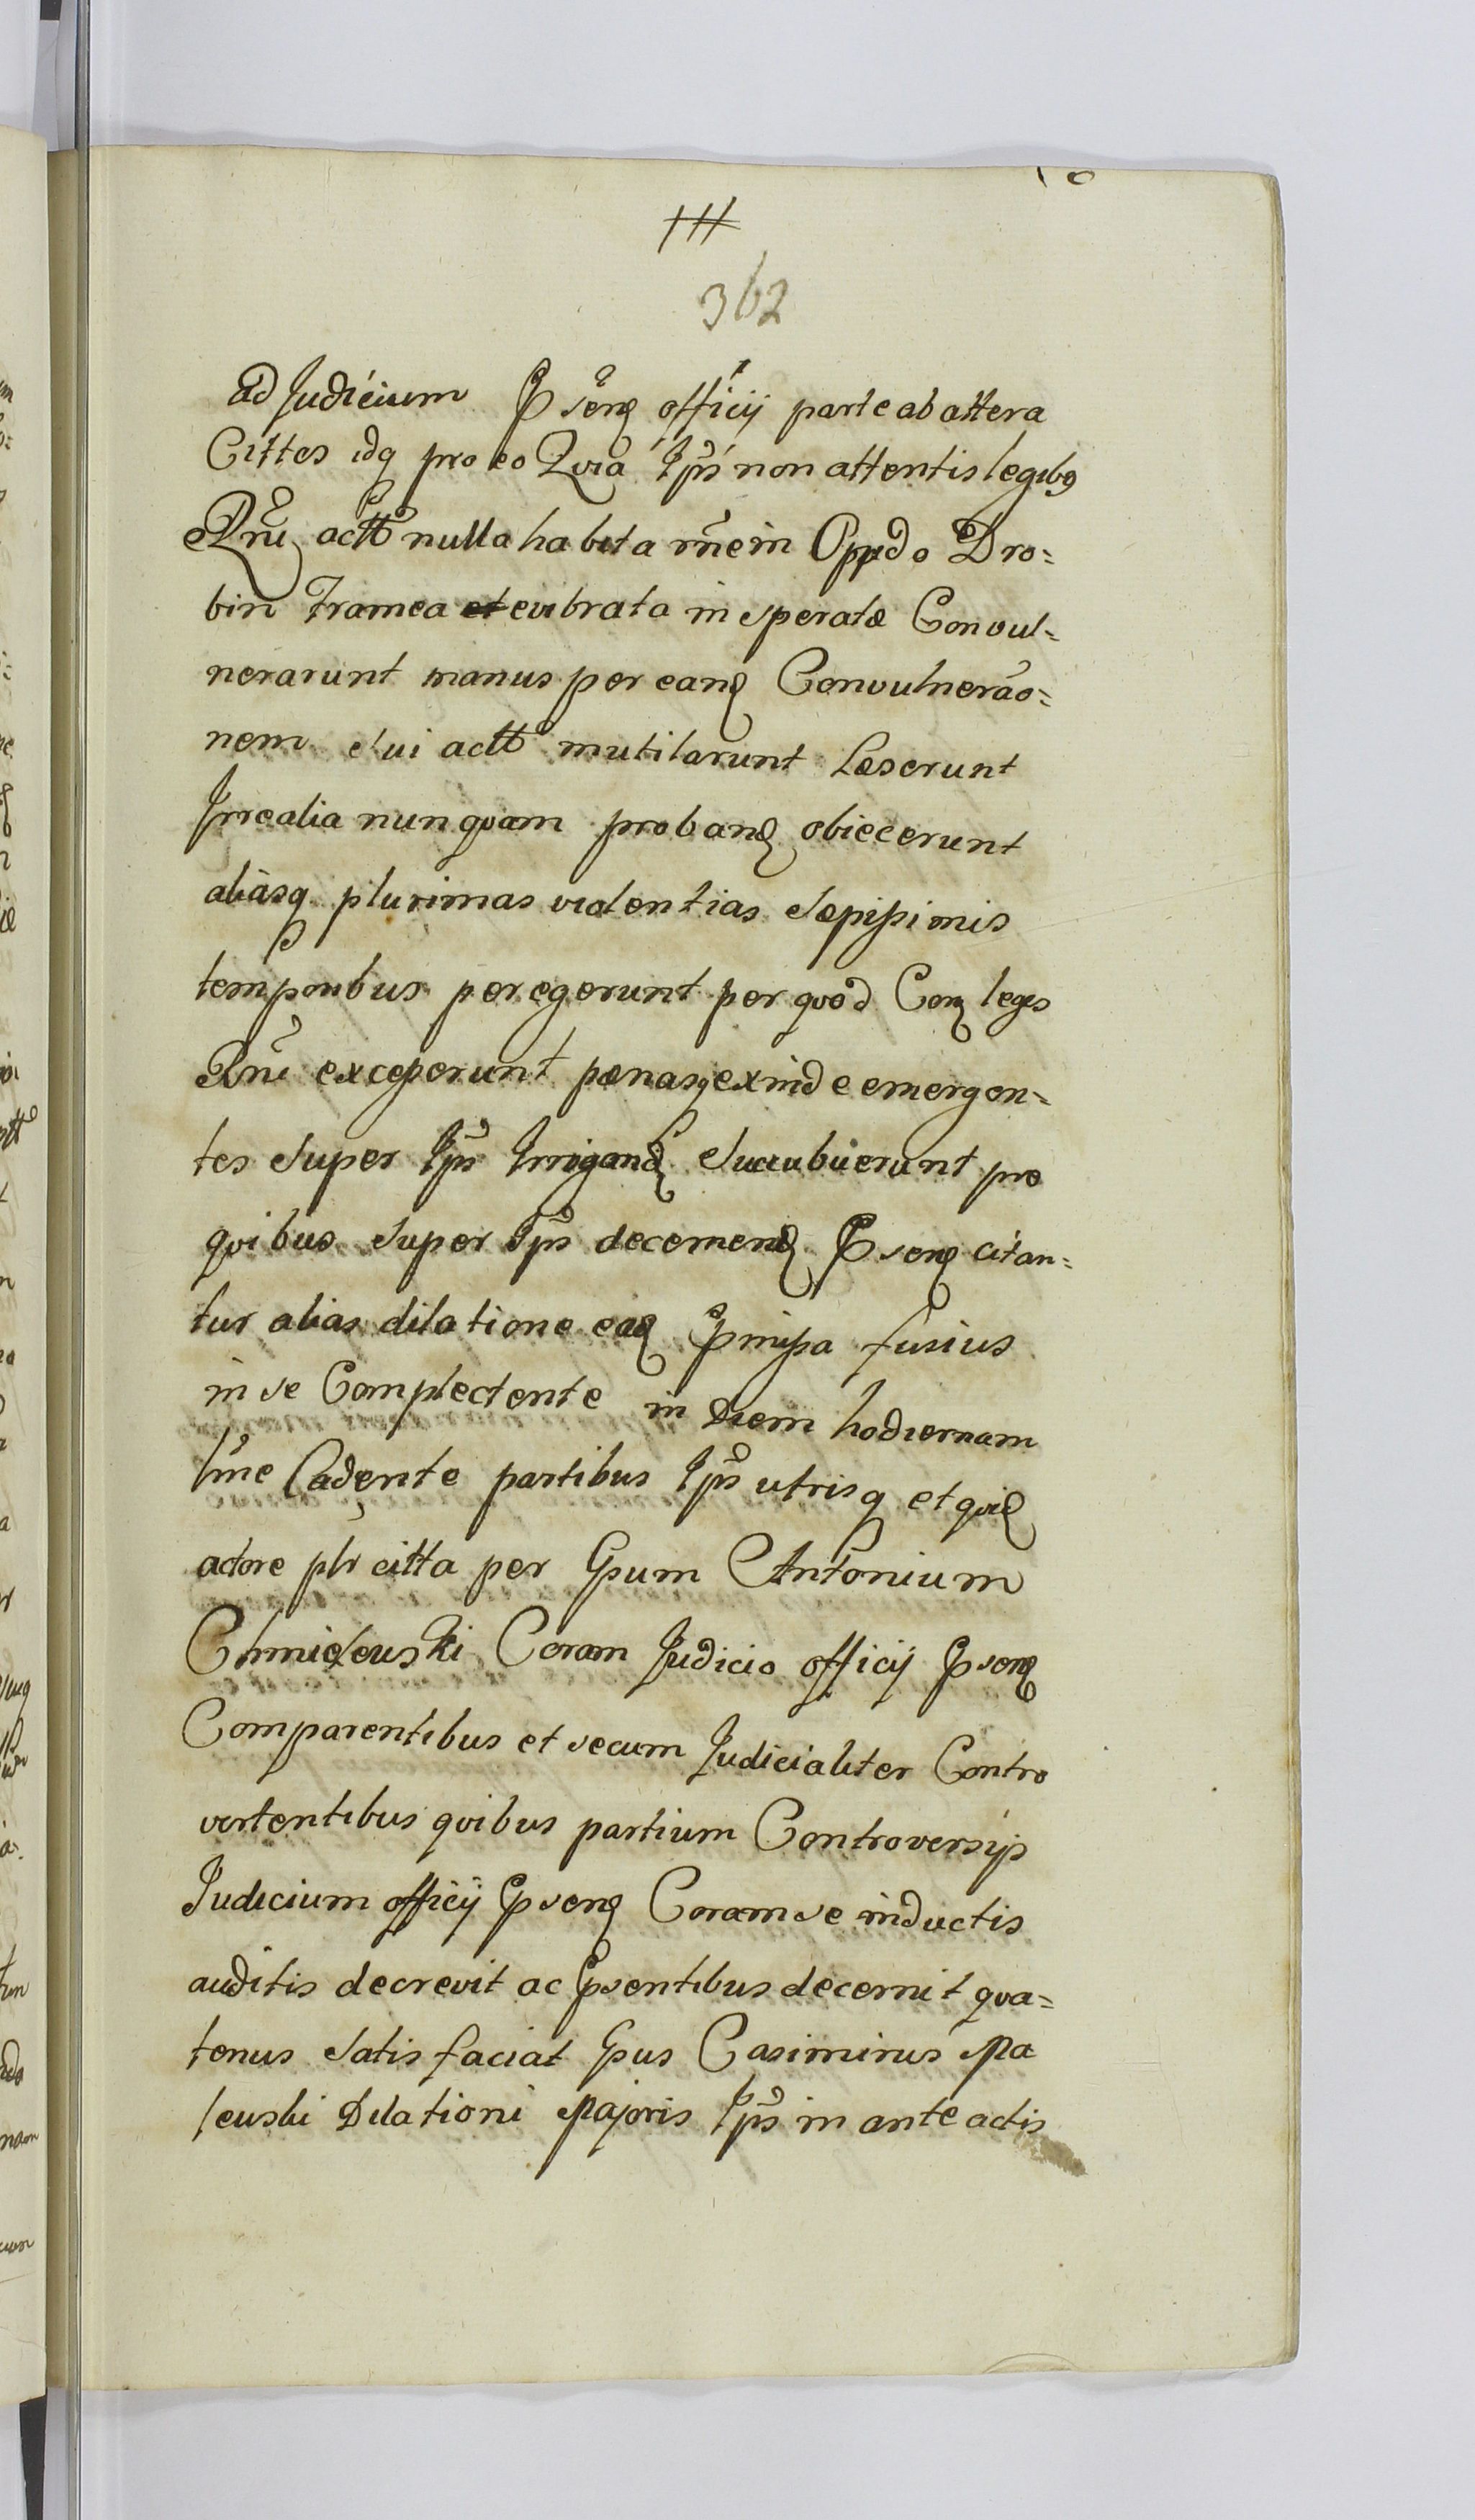 362
ad Judicium Psenq officij parte ab altera
Cittes idq pro eo Quia Ips non attentis legibq
Rni actt nulla habita rne in Oppdo Dro=
bin framea evibrata insperate Convul=
nerarunt manus per eand Convulnerao=
nem sui actt mutilarunt Læserunt
Irrealia nunquam proband obiecerunt
aliasq plurimas violentias sæpissimis
temporibus peregerunt per quod Conq leges
Rni exceperunt pænasq exinde emergen=
tes super Ips Irrigand Succubuerunt pro
quibus super Ips decernend Psenq citan=
tur alias dilatione ead Pmissa fusius
in se Complectente in Diem hodiernam
lme Cadente partibus Ips utrisq et quid
actore plr citta per Gsum Antonium
Chmieleuski Coram Judicio officij Psenq
Comparentibus et secum Judicialiter Contro
vertentibus quibus partium Controversijs
Judicium officij Psenq Coram se inductis
auditis decrevit ac Psentibus decernit qua=
tenus satisfaciat Gsus Casimirus Ma
leuski Dilationi Majoris Ips in ante actis